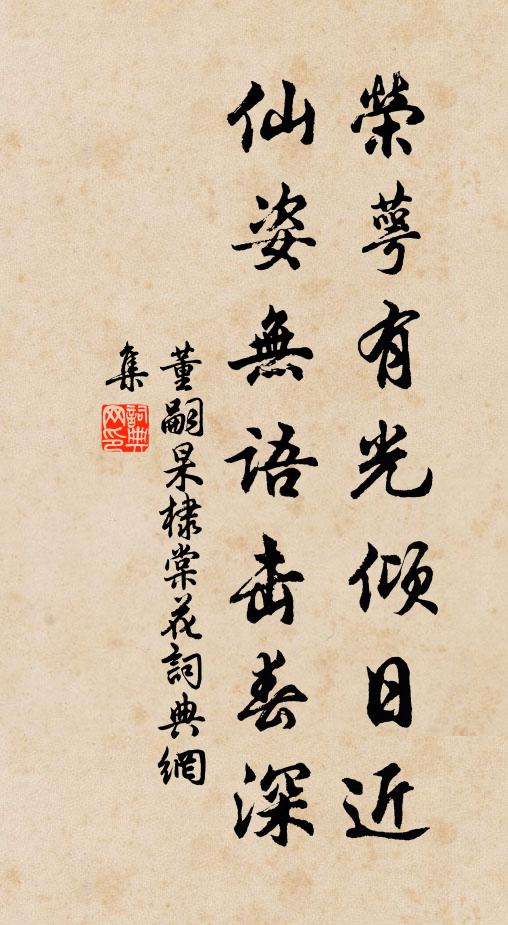 榮萼有光傾日近
仙姿無語击春深
董嗣杲棣棠花詞典網
集
詞典
网印